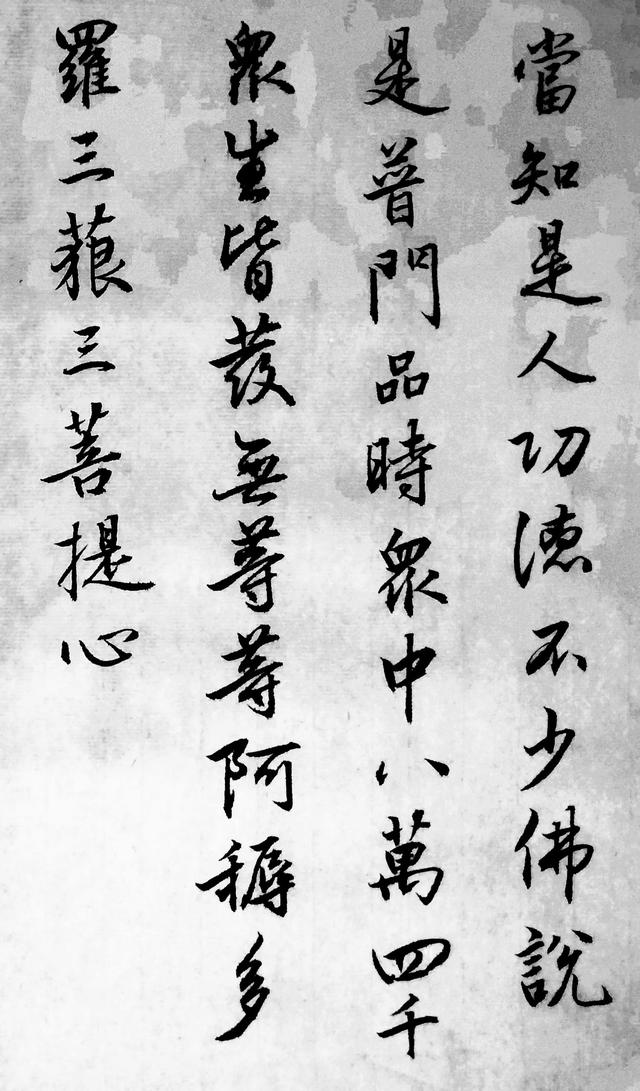 當知是人功德不少佛說
是普門品時眾中八萬四千
眾生皆發無等等阿耨多
羅三藐三菩提心